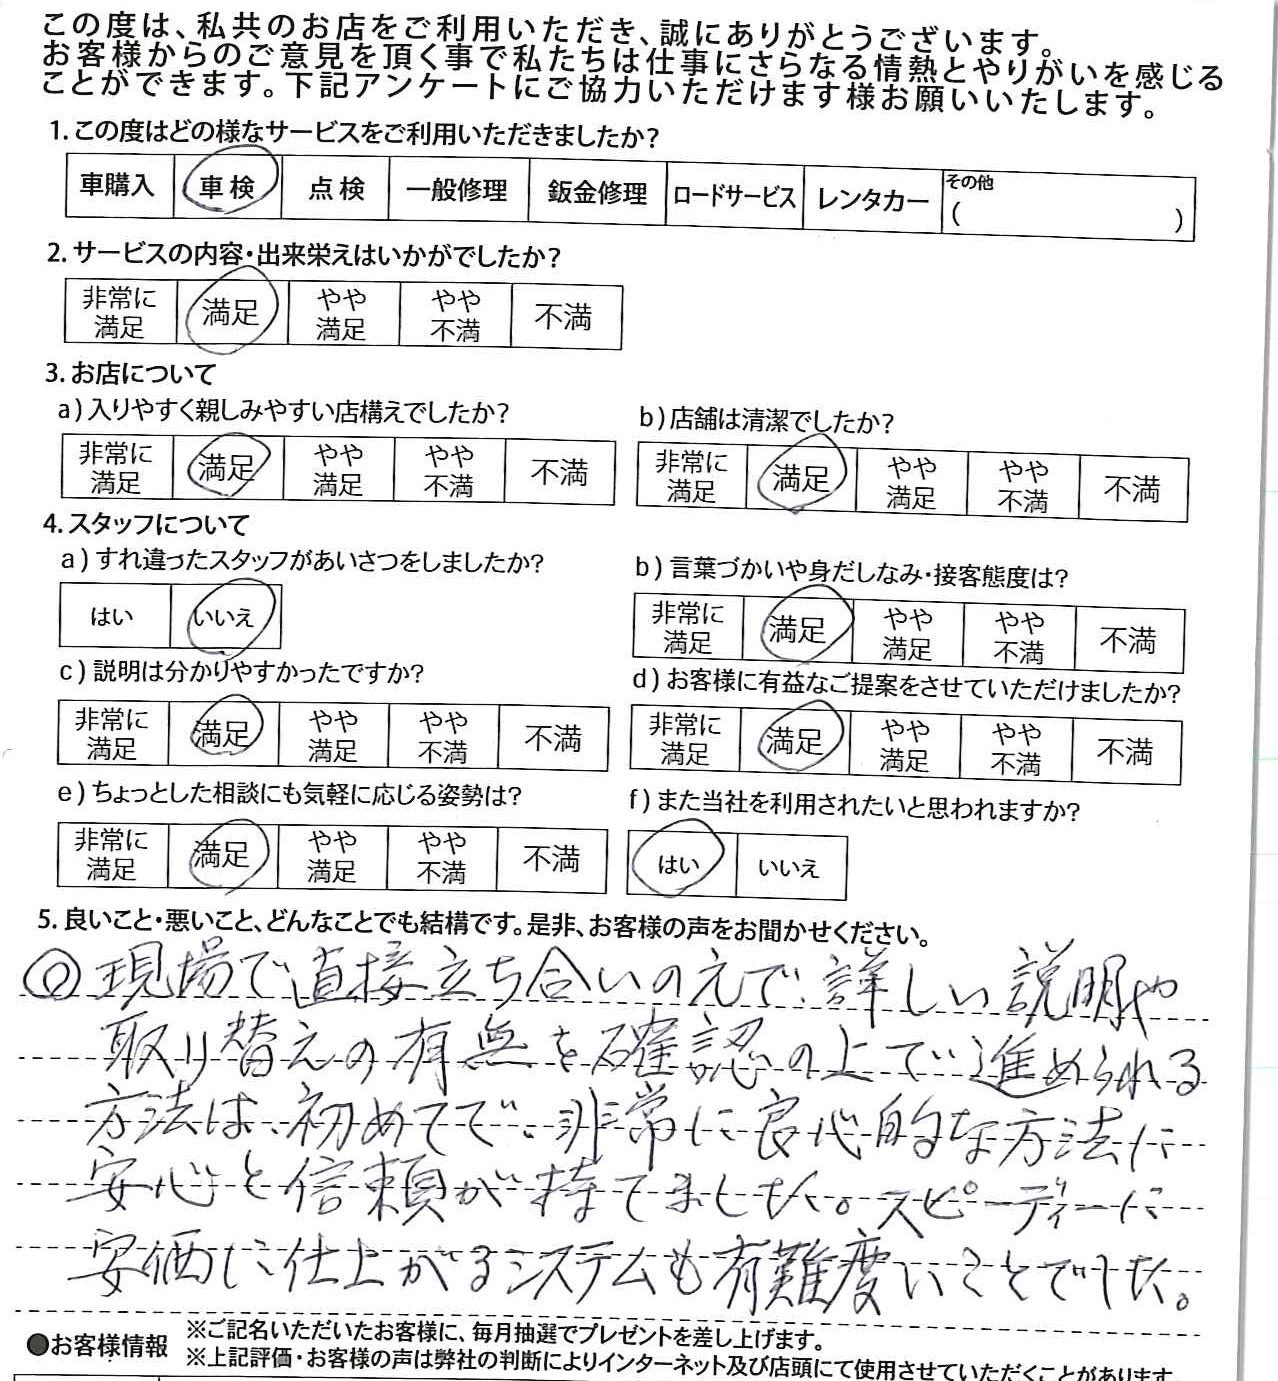 この度は、私共のお店をご利用いただき、誠にありがとうございます。
お客様からのご意見を頂く事で私たちは仕事にさらなる情熱とやりがいを感じる
ことができます。下記アンケートにご協力いただけます様お願いいたします。
1.この度はどの様なサービスをご利用いただきましたか?
車購入 車検 点検 一般修理 鈑金修理 ロードサービス レンタカー その他 ( )
2.サービスの内容・出来栄えはいかがでしたか?
非常に満足 満足 やや満足 やや不満 不満
3.お店について
a)入りやすく親しみやすい店構えでしたか?
非常に満足 満足 やや満足 やや不満 不満
b)店舗は清潔でしたか?
非常に満足 満足 やや満足 やや不満 不満
4.スタッフについて
a)すれ違ったスタッフがあいさつをしましたか?
はい いいえ
b)言葉づかいや身だしなみ・接客態度は?
非常に満足 満足 やや満足 やや不満 不満
c)説明は分かりやすかったですか?
非常に満足 満足 やや満足 やや不満 不満
d)お客様に有益なご提案をさせていただけましたか?
非常に満足 満足 やや満足 やや不満 不満
e)ちょっとした相談にも気軽に応じる姿勢は?
非常に満足 満足 やや満足 やや不満 不満
f)また当社を利用されたいと思われますか?
はい いいえ
5.良いこと・悪いこと、どんなことでも結構です。是非、お客様の声をお聞かせください。
◎現場で直接立ち合いのえで、詳しい説明や
取り替えの有無を確認の上で進められる
方法は、初めてで、非常に良心的な方法に
安心と信頼が持てました。スピーディーに
安価に仕上がるシステムも有難度いことでした。
●お客様情報
※ご記名いただいたお客様に、毎月抽選でプレゼントを差し上げます。
※上記評価・お客様の声は弊社の判断によりインターネット及び店頭にて使用させていただくことがあります。